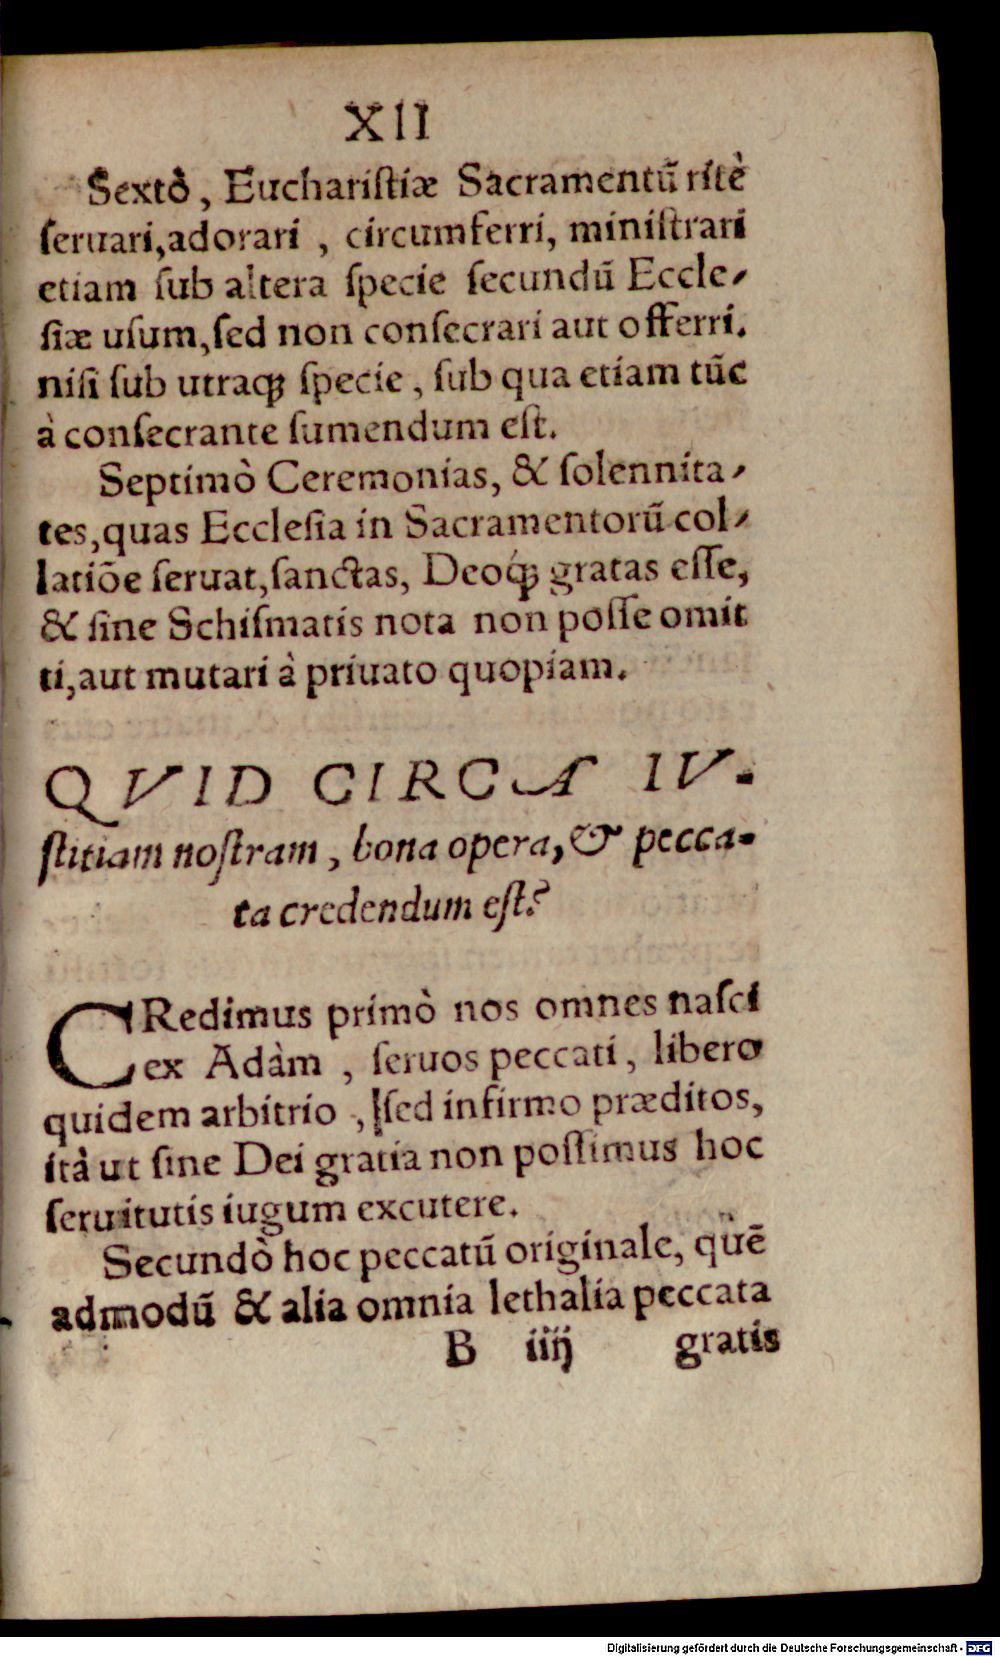 XII
Sextò, Euchariſtiæ Sacramentũ ritè
ſeruari, adorari, circumferri, miniſtrari
etiam ſub altera ſpecie ſecundũ Eccle-
ſiæ uſum, ſed non conſecrari aut offerri.
niſi ſub utraqꝫ ſpecie, ſub qua etiam tũc
à conſecrante ſumendum eſt.
Septimò Ceremonias, & ſolennita-
tes, quas Eccleſia in Sacramentorũ col-
latiõe ſeruat, ſanctas, Deoqꝫ gratas eſſe,
& ſine Schiſmatis nota non poſſe omit
ti, aut mutari à priuato quopiam.
QVID CIRCA IV-
ſtitiam noſtram, bona opera, & pecca-
ta credendum eſt?
CRedimus primò nos omnes naſci
ex Adàm, ſeruos peccati, libero
quidem arbitrio, ſed infirmo præditos,
ità ut ſine Dei gratia non poſſimus hoc
ſeruitutis iugum excutere.
Secundò hoc peccatũ originale, quẽ
admodũ & alia omnia lethalia peccata
B iiij gratis
Digitalisierung gefördert durch die Deutsche Forschungsgemeinschaft - DFG